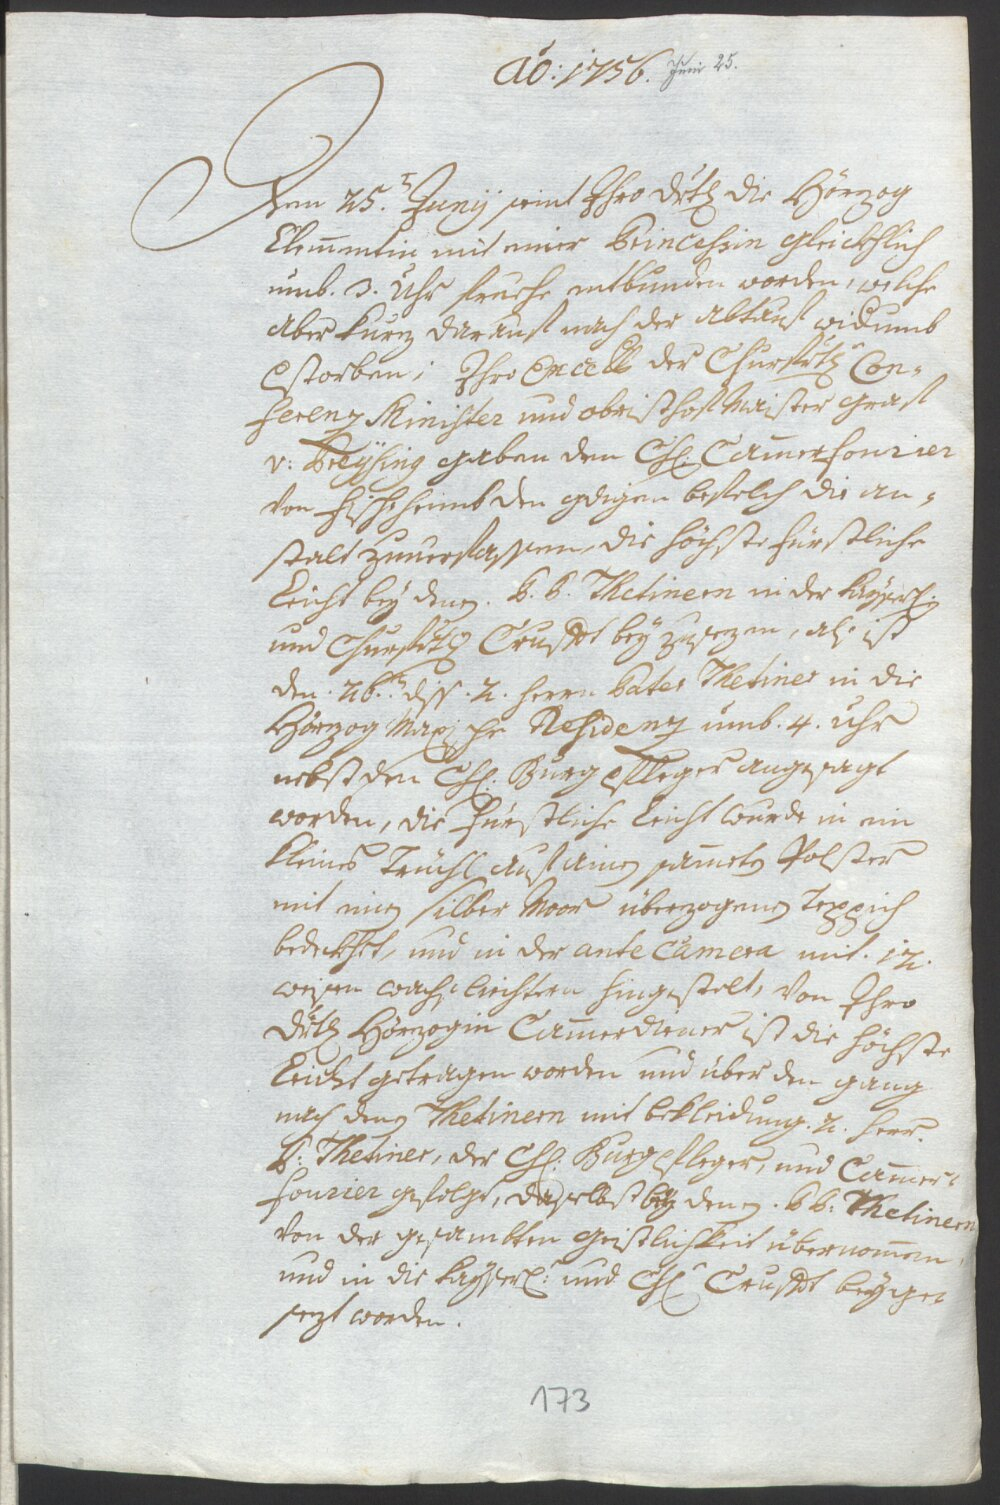 Aõ: 1756. Juni 25.
Den 25.t Junÿ seint Ihro drtl die Hörzog
Clemmentin mit einer Princessin glücklich
umb. 3. Uhr fruehe entbunden worden, welche
aber kurz darauf nach der abtauf widumb
gstorben; Ihro Excell: der Churfrtl Con„
ferenz Minister und obristhofMaister graf
v: Preÿsing gaben den Chl. Camerfourier
von den gdigen befelch die an„
stalt zuuerfassen, die höchste fürstliche
Leicht beÿ denen. P. P. Thetinern in der kaÿserl:
und Churfrtl Crufft beÿ zusezen, als ist
den. 26.t diss. 2. herrn Pater Thetiner in die
Hörzog Maxische Residenz umb. 4. Uhr
nebst den Chl. Burg pfleger angesagt
worden, die fürstliche Leicht wurde in ein
kleines Trüchl auf ainen sameten Polster
mit einen silber Moor überzogenen Teppich
bedekhet, und in der ante Camera mit. 12.
weissen wachsliechtern hingestelt, Von Ihro
drtl Hörzogin Camerdiener ist die höchste
Leicht getragen worden und über den gang
nach denen Thetinern mit bekleidung. 2. herr.
P: Thetiner, der Chl. Burgpfleger, und Camer„
fourier gefolgt, daselbst beÿ denen. P P: Thetinern
von der gesambten geistlichkeit übernommen,
und in die kaÿserl: und Chl: Crufft beÿge„
sezt worden.
173